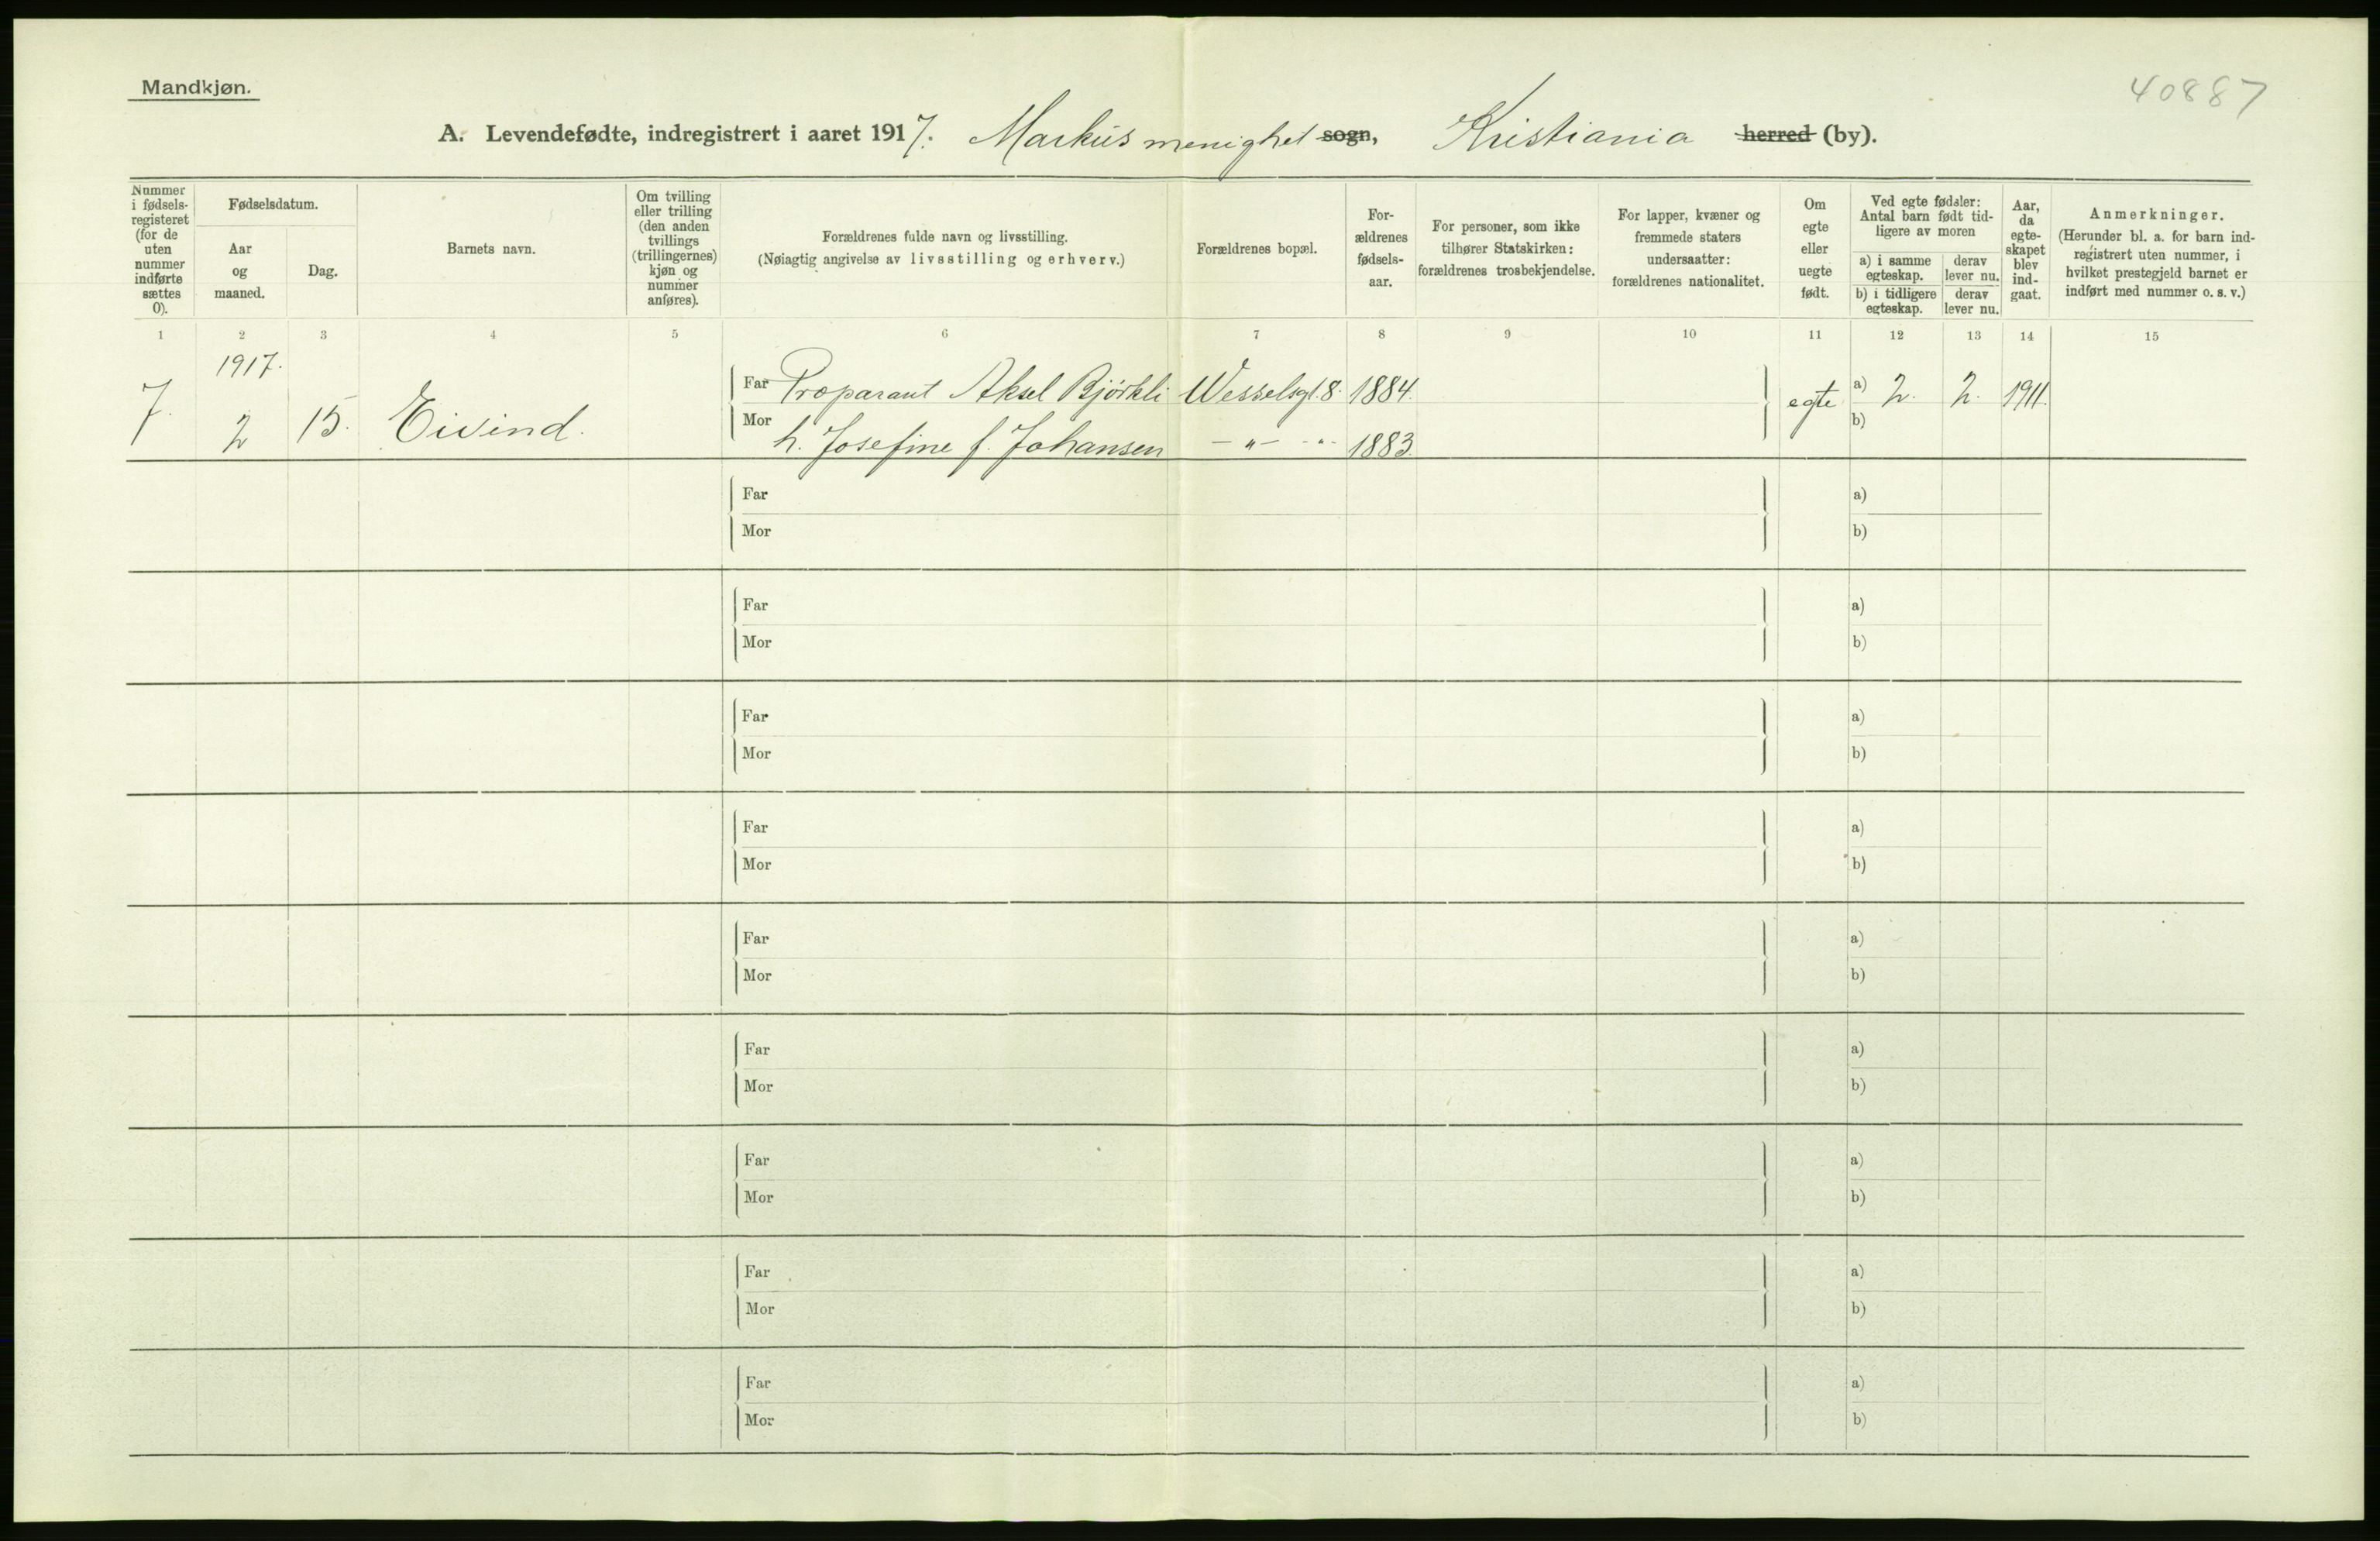 Mandkjøn.
40887
A. Levendefødte, indregistrert i aaret 1917. Markus menighet sogn, Kristiania herred (by).
Nummer i fødsels-registeret (for de uten nummer indførte sættes 0).
Fødselsdatum.
Aar og maaned.
Dag.
Barnets navn.
Om tvilling eller trilling (den anden tvillings (trillingernes) kjøn og nummer anføres).
Forældrenes fulde navn og livsstilling.
(Nøiagtig angivelse av livsstilling og erhverv.)
Forældrenes bopæl.
For-ældrenes fødsels-aar.
For personer, som ikke tilhører Statskirken: forældrenes trosbekjendelse.
For lapper, kvæner og fremmede staters undersaatter: forældrenes nationalitet.
Om egte eller uegte født.
Ved egte fødsler: Antal barn født tid-ligere av moren
a) i samme egteskap.
derav lever nu.
b) i tidligere egteskap.
derav lever nu.
Aar, da egte-skapet blev ind-gaat.
Anmerkninger.
(Herunder bl. a. for barn ind-registrert uten nummer, i hvilket prestegjeld barnet er indført med nummer o. s. v.)
1 2 3 4 5 6 7 8 9 10 11 12 13 14 15
1917.
7. 2 15. Eivind.
Far Præparant Aksel Bjørkli Wesselsgt. 8. 1884. egte a) 2. 2. 1911.
Mor h. Josefine f. Johansen – " – - " - 1883. b)
Far a)
Mor b)
Far a)
Mor b)
Far a)
Mor b)
Far a)
Mor b)
Far a)
Mor b)
Far a)
Mor b)
Far a)
Mor b)
Far a)
Mor b)
Far a)
Mor b)